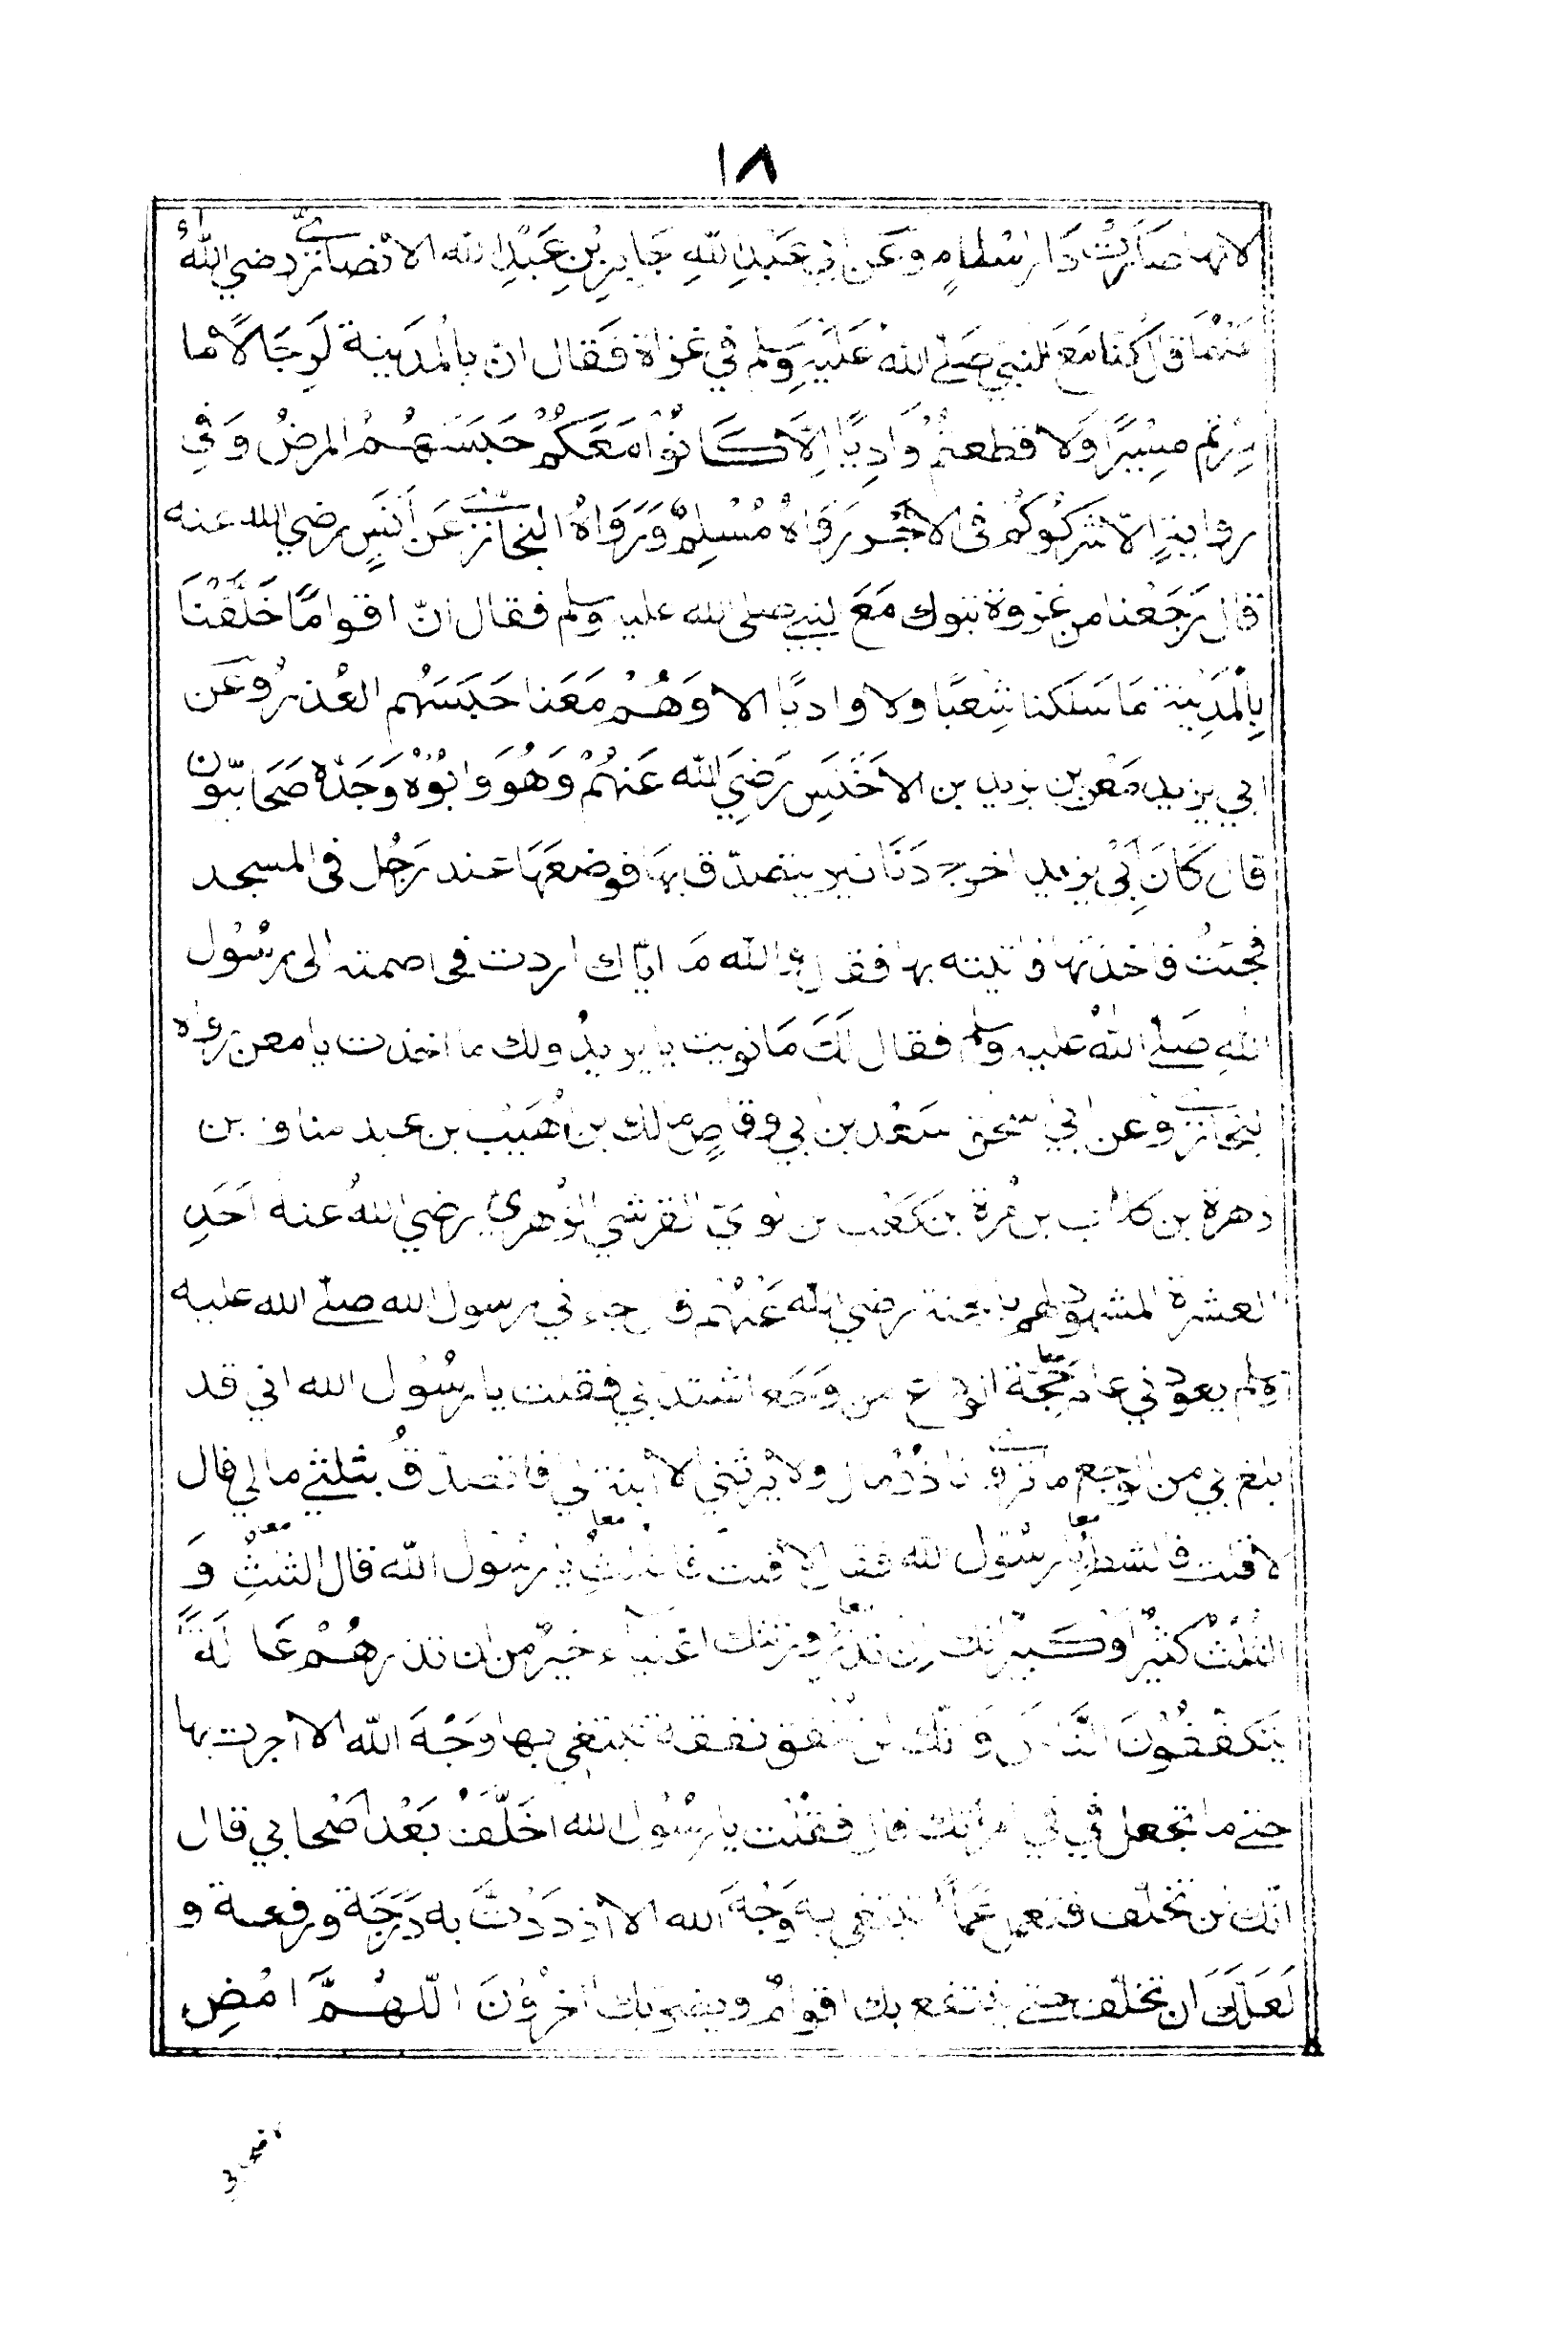 ١٨
لانها صَارَتْ دَارَ اسْلَامٍ وَعَن ابي عَبْدِ اللّٰهِ جَابِرِ بْنِ عَبْدِ اللّٰه الانْصَارِيّ رضي اللّٰهُ
عَنْهُمَا قال كُنَّا مَعَ النبيّ صَلَّى اللّٰهُ عَلَيْهِ وَسَلم في غزاة فَقال ان بالْمَدينة لَرِجَالاً ما
سِرْتم مسِيْرًا وَلا قطعتمْ وَادِيًا اِلَّا كَانُوْا مَعَكُمْ حَبَسَهُمُ المرضُ وَفي
رواية اِلّا شَرِكُوْكُمْ فى الاَجْر رَوَاهُ مُسْلِمٌ وَرَوَاهُ البُخَارِيّ عَن أنَسٍ رضي الله عنه
قال رَجَعْنا من غزوة تبوك مَعَ النبي صلى الله عليه وسلم فقال انّ اقوامًا خَلْفَنَا
بِالْمَدِيْنة مَا سَلَكنا شِعْبًا ولا واديًا الا وَهُمْ مَعَنا حَبَسَهُم العُذرُ وعَن
ابي يزيد مَعْن بن يزيد بن الاَخْنَسِ رَضِيَ اللّٰه عَنهُمْ وَهُوَ وَابُوْهُ وَجَدّهُ صَحَابيّون
قال كَانَ اَبِيْ يزيد اخرج دَنَانير يتصدّق بِهَا فوضعَهَا عند رَجُل فى المسجد
فجئتُ فاخذتها فاتيته بها فقال واللّٰه مَا ايّاك اردت فخاصمته الى رسُوْل
اللّٰهِ صَلَّى اللّٰهُ عليه وسلم فقال لَكَ مَا نويت يا يزيدُ ولك ما اخذت يا معن رواه
البخاريّ وعن ابي اسحق سَعْد بن ابي وقاصٍ مالك بن اُهَيْب بن عبد مناف بن
زهرة بن كلاب بن مُرة بن كَعْب بن لؤيّ القرشي الزُهري رضي اللّٰهُ عنه اَحَدِ
العشرة المشهود لهم بالجنة رضي اللّٰه عَنْهُمْ قال جاءني رسول الله صلّى الله عليه
وسلم يعودني عام حَجّة الوداع من وجَع اشتد بي فقلت يا رسُوْل الله اني قد
بلغ بي من الوجع ما ترى وانا ذوْ مال ولا يرثني الا ابنة لي افاتصدّقُ بثلثي مالي قال
لا قلت فالشطر يا رسُول اللّٰه فقال لا قلت فالثلث يا رسُوْل اللّٰه قال الثلثُ وَ
الثلثُ كثيْرٌ اَوْ كَبِيْرٌ انك اِن تذر ورثتك اغنياء خيرٌ من ان تذرهُمْ عَالَةً
يَتَكَفّفُوْنَ النَّاسَ وَانّك لن تنفق نفقة تبتغي بها وَجْهَ اللّٰه الا اُجرت بها
حتى ما تجعل في في امرأتك قال فقلْت يا رسُوْل الله اُخَلَّفُ بَعْدَ اَصْحابي قال
انّك لن تُخلّف فتعمل عَمَلاً تبتغي به وَجْهَ الله الا ازدَدْتَ به دَرَجَة ورفعة و
لَعَلّكَ ان تخلّف حتى ينتفع بك اقوامٌ ويضر بك آخرُوْنَ اللّهُمَّ امْضِ